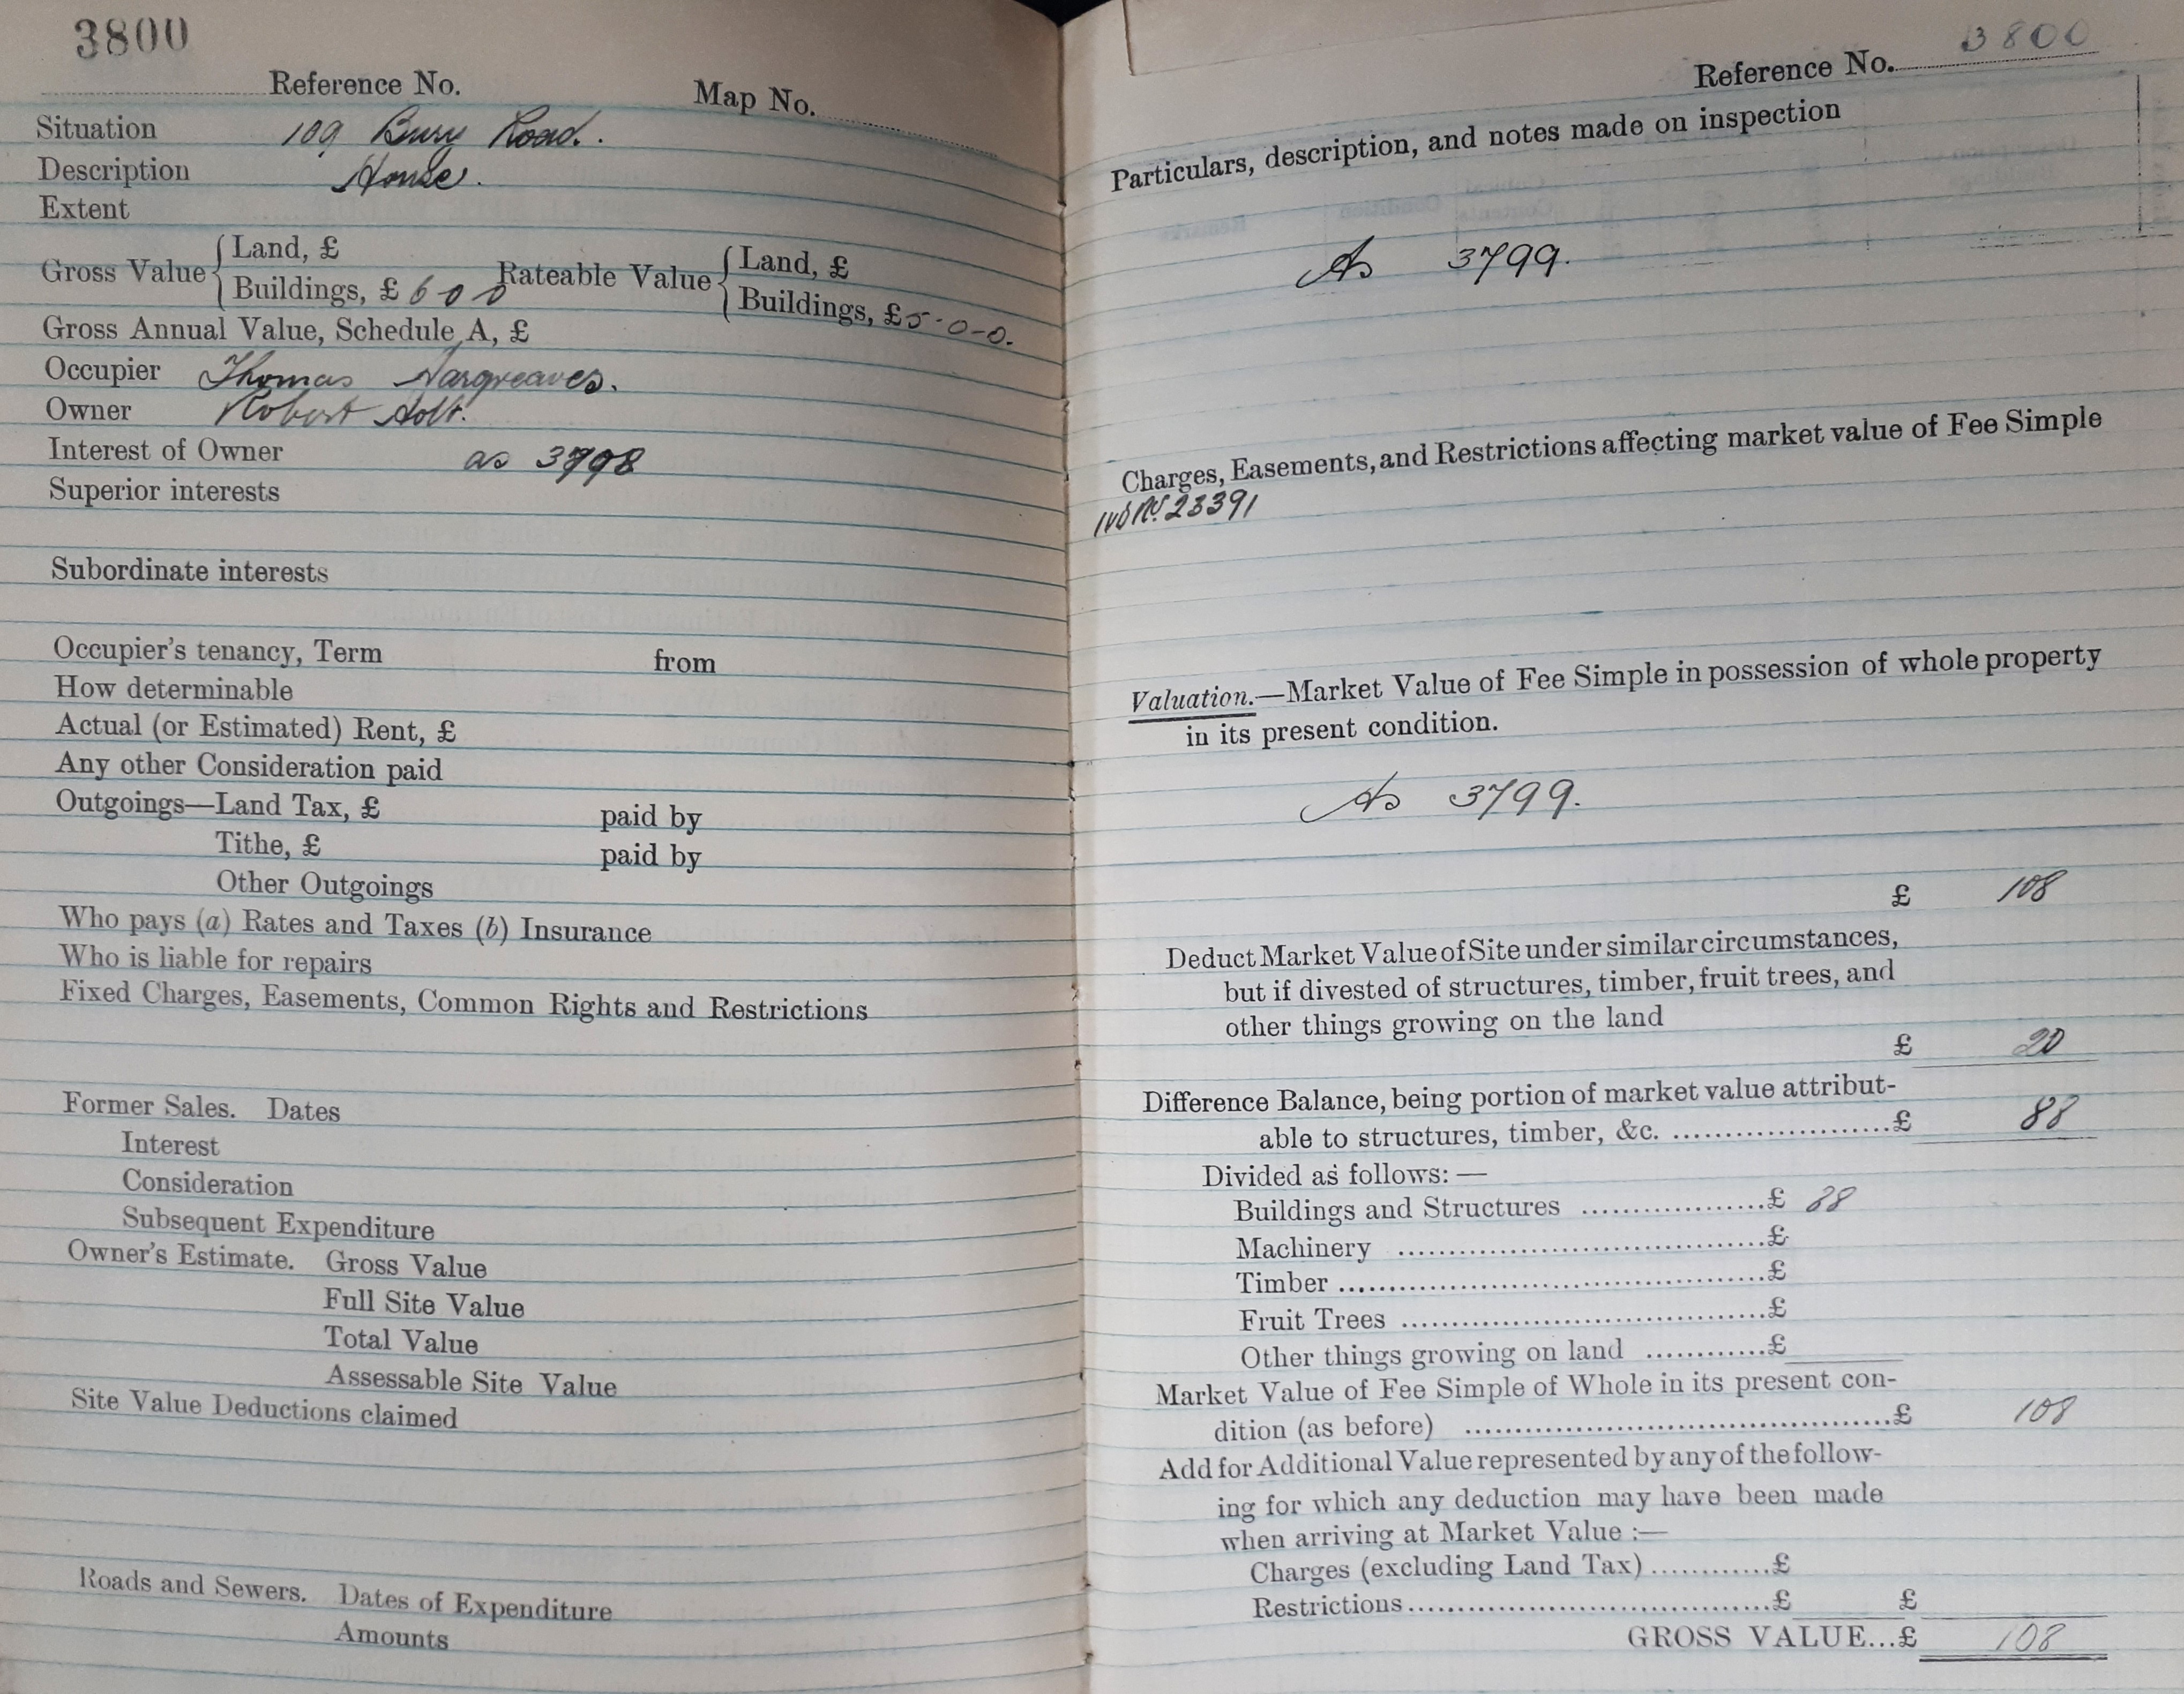 3800
Reference No. Map No.
Situation 109 Bury Road.
Description House.
Extent
Gross Value { Land, £
Buildings, £ 6 0 0 Rateable Value { Land, £
Buildings, £ 5-0-0.
Gross Annual Value, Schedule A, £
Occupier Thomas Hargreaves.
Owner Robert Holt.
Interest of Owner as 3798
Superior interests
Subordinate interests
Occupier's tenancy, Term from
How determinable
Actual (or Estimated) Rent, £
Any other Consideration paid
Outgoings—Land Tax, £ paid by
Tithe, £ paid by
Other Outgoings
Who pays (a) Rates and Taxes (b) Insurance
Who is liable for repairs
Fixed Charges, Easements, Common Rights and Restrictions
Former Sales. Dates
Interest
Consideration
Subsequent Expenditure
Owner's Estimate. Gross Value
Full Site Value
Total Value
Assessable Site Value
Site Value Deductions claimed
Roads and Sewers. Dates of Expenditure
Amounts
Reference No. 3800
Particulars, description, and notes made on inspection
As 3799.
Charges, Easements, and Restrictions affecting market value of Fee Simple
No. 23391
Valuation.—Market Value of Fee Simple in possession of whole property
in its present condition.
As 3799.
£ 108
Deduct Market Value of Site under similar circumstances,
but if divested of structures, timber, fruit trees, and
other things growing on the land
£ 20
Difference Balance, being portion of market value attribut-
able to structures, timber, &c. ......................£ 88
Divided as follows: —
Buildings and Structures ...................£ 88
Machinery ......................................£
Timber ............................................£
Fruit Trees ......................................£
Other things growing on land ............£
Market Value of Fee Simple of Whole in its present con-
dition (as before) ............................................£ 108
Add for Additional Value represented by any of the follow-
ing for which any deduction may have been made
when arriving at Market Value :—
Charges (excluding Land Tax) ............£
Restrictions ......................................£ £
GROSS VALUE...£ 108